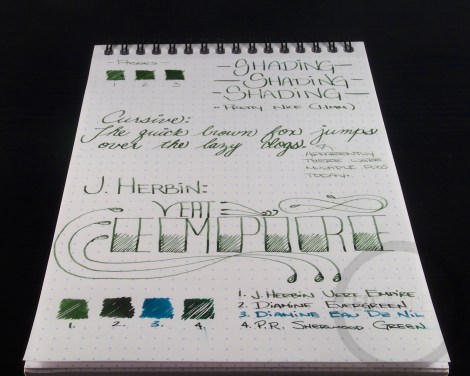 - PASSES -
1 2 3
-SHADING-
SHADING-
SHADING-
- PRETTY NICE (HMM)
Cursive:
The quick brown fox jumps
over the lazy dogs.
APPARENTLY
THERE WERE
MULTIPLE DOGS
TODAY.
J. HERBIN:
VERT
EMPIRE
1. 2. 3. 4.
1. J. HERBIN VERT EMPIRE
2. DIAMINE EVERGREEN
3. DIAMINE EAU DE NIL
4. P.R. SHERWOOD GREEN